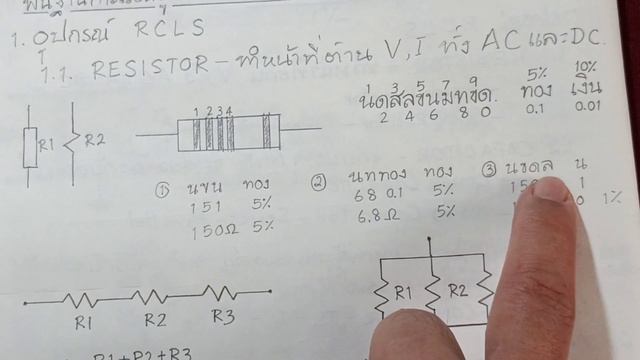 1. อุปกรณ์ RCLS
1.1. RESISTOR - ทำหน้าที่ต้าน V, I ทั้ง AC และ DC.
3 5 7 5% 10%
น่ดสัสขนมทขด. ทอง เงิน
2 4 6 8 0 0.1 0.01
1 2 3 4
R1 R2
① นขน ทอง ② นททอง ทอง ③ นขดล น
151 5% 68 0.1 5% 1
150Ω 5% 6.8Ω 5% 0 1%
R1 R2
R1 R2 R3
R1+R2+R3